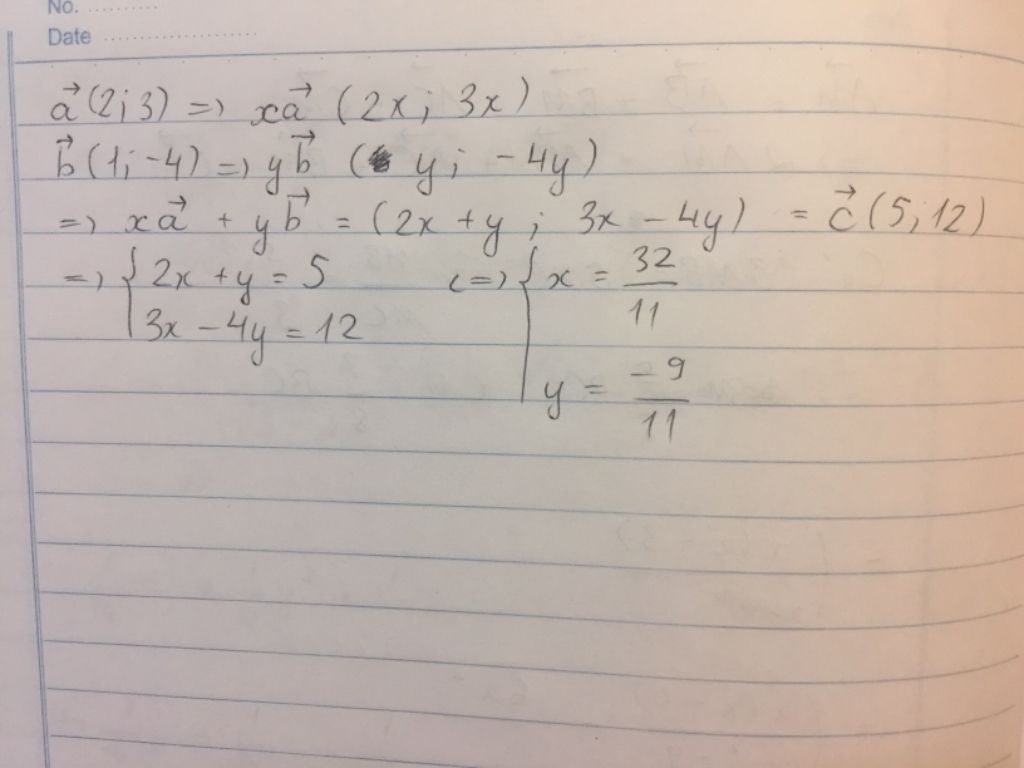 No. ............
Date ........................
a⃗ (2; 3) => xa⃗ (2x; 3x)
b⃗ (1; -4) => yb⃗ (y; -4y)
=> xa⃗ + yb⃗ = (2x + y; 3x - 4y) = c⃗ (5; 12)
=> { 2x + y = 5 <=> { x = 32/11
3x - 4y = 12
y = -9/11